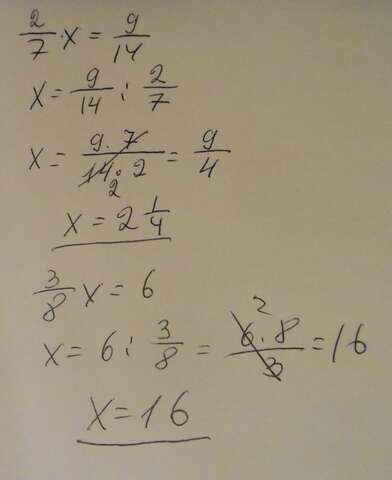 2/7 · x = 9/14
x = 9/14 : 2/7
x = 9 · 7/14 · 2 = 9/4
2
x = 2 1/4
3/8 x = 6
2
x = 6 : 3/8 = 6 · 8/3 = 16
x = 16